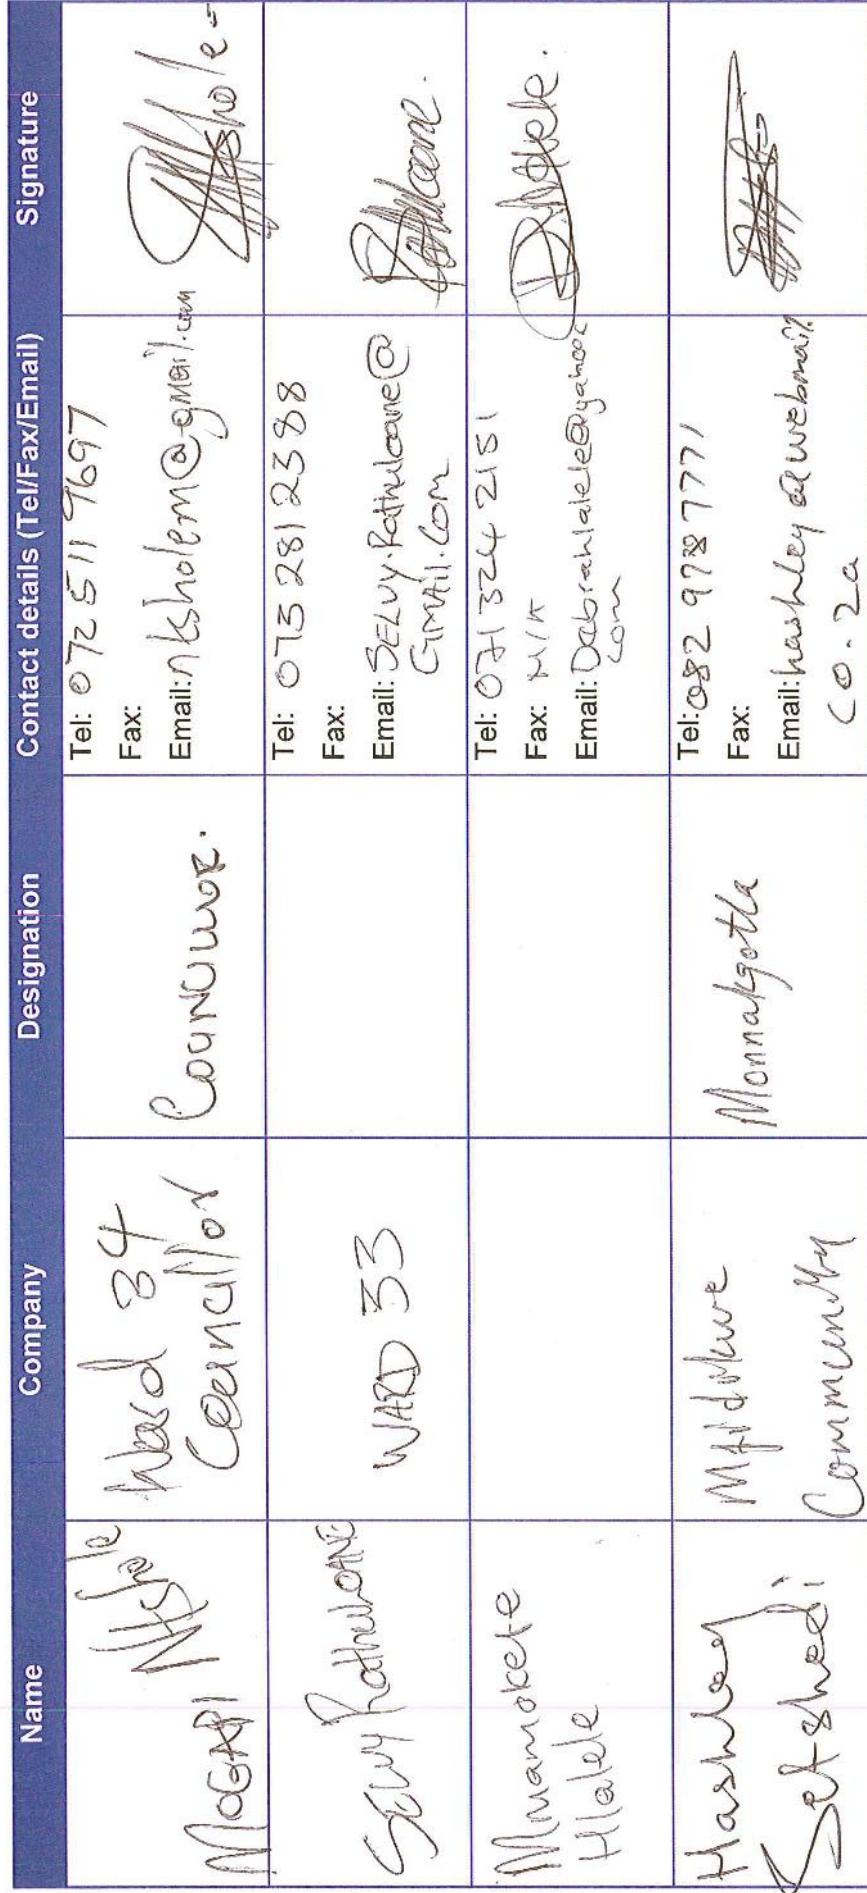 Name Company Designation Contact details (Tel/Fax/Email) Signature
MOGAPI Ntshole
Ward 34
Councillor
Councillor.
Tel: 072 511 9697
Fax:
Email: nksholem@gmail.com
SELVY Rathuloane
WARD 33
Tel: 073 281 2388
Fax:
Email: SELVY.Rathuloane@
GMAIL.Com
Mmamokete
Hlalele
Tel: 071 324 2151
Fax: N/A
Email: Dabrahlalele@yahoo
com
Hashley
Setshedi
Mfidikwe
Community
Monnakgotla
Tel: 082 978 7771
Fax:
Email: hashley@webmail
co.za